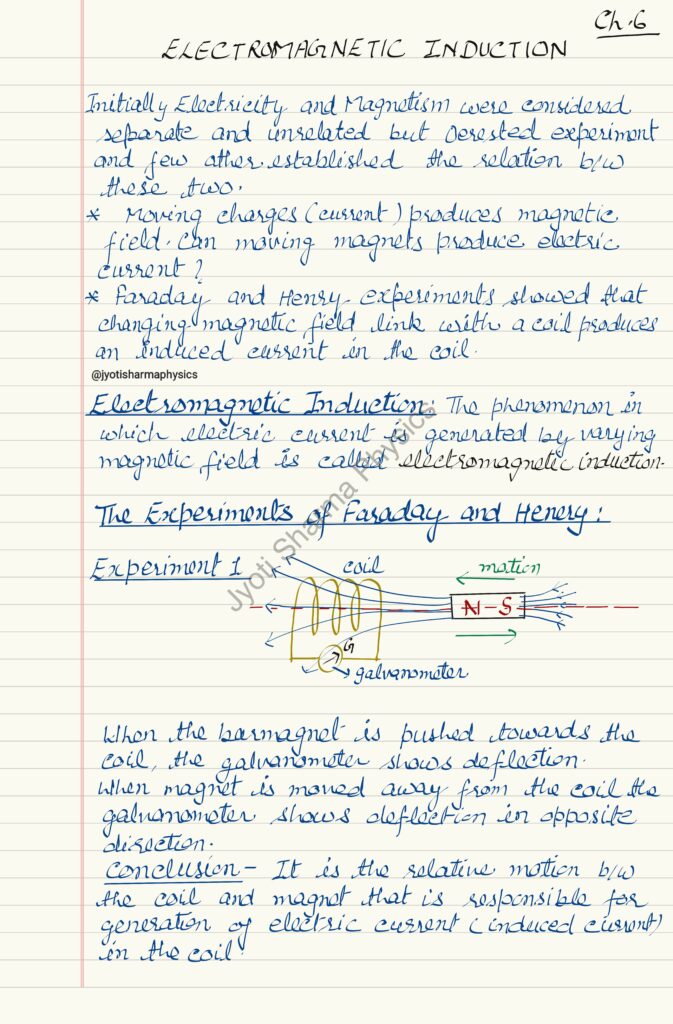 Ch.6
ELECTROMAGNETIC INDUCTION
Initially Electricity and Magnetism were considered
separate and unrelated but Oerested experiment
and few other established the relation b/w
these two.
* Moving charges (current) produces magnetic
field. Can moving magnets produce electric
current?
* Faraday and Henry experiments showed that
changing magnetic field link with a coil produces
an induced current in the coil.
@jyotisharmaphysics
Electromagnetic Induction: The phenomenon in
which electric current is generated by varying
magnetic field is called electromagnetic induction.
The Experiments of Faraday and Henery:
Experiment 1
coil
motion
N-S
G
galvanometer
Jyoti Sharma Physics
When the barmagnet is pushed towards the
coil, the galvanometer shows deflection.
When magnet is moved away from the coil the
galvanometer shows deflection in opposite
direction.
Conclusion - It is the relative motion b/w
the coil and magnet that is responsible for
generation of electric current (induced current)
in the coil.